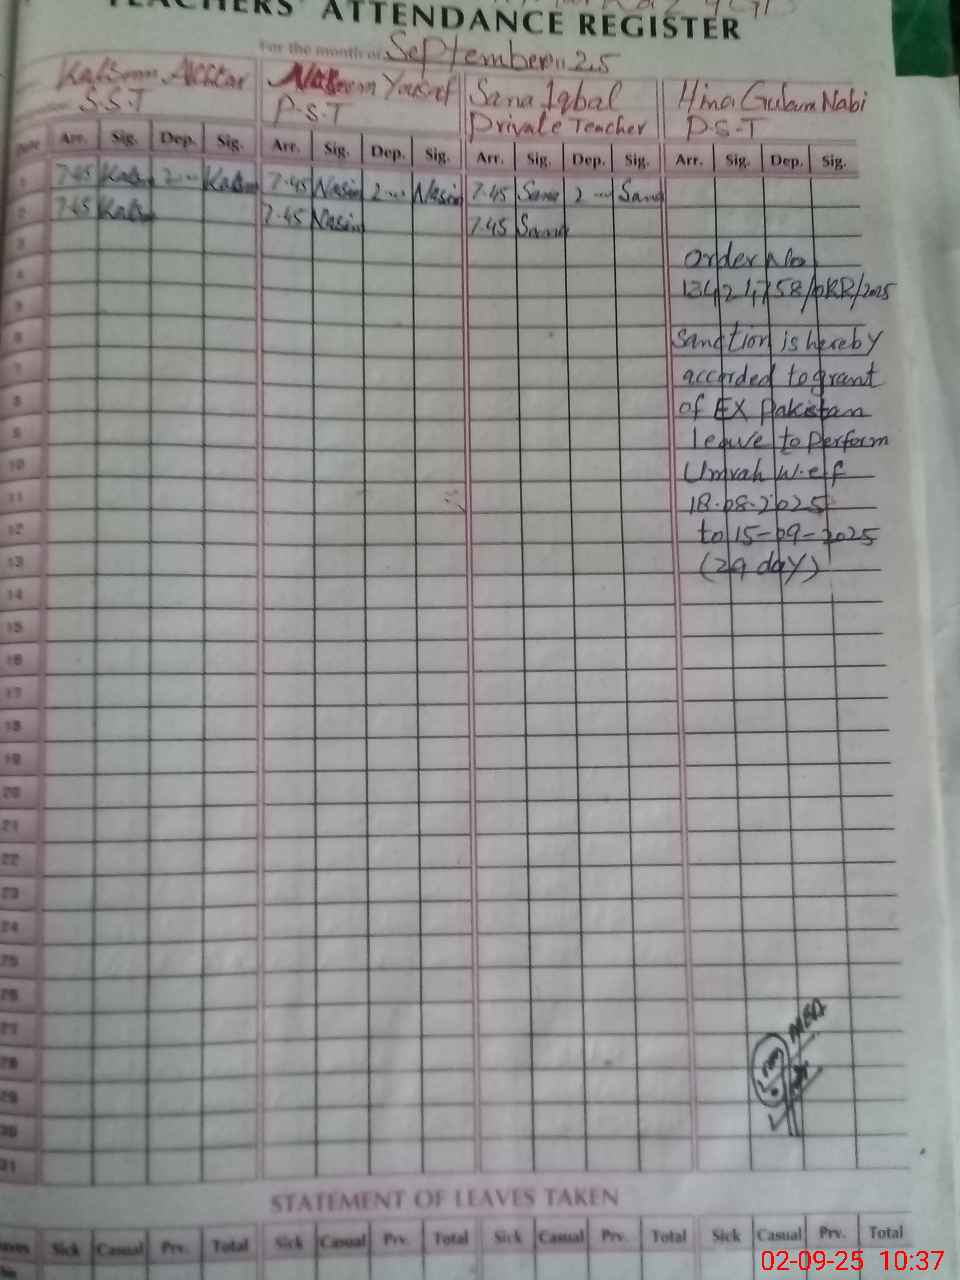 TEACHERS' ATTENDANCE REGISTER
For the month of September 25
Kalsoom Akhtar Yousaf Sana Iqbal Hina Gulam Nabi
S.S.T P.S.T Private Teacher P.S.T
Date Arr. Sig. Dep. Sig. Arr. Sig. Dep. Sig. Arr. Sig. Dep. Sig. Arr. Sig. Dep. Sig.
1 7.45 2... 7.45 Nasim 2... Nasim 7.45 Sana 2... Sana
2 7.45 7.45 Nasim 7.45 Sana
3 order No
4 /2025
5
6 Sanction is hereby
7 accorded to grant
8 of EX Pakistan
9 leave to Perform
10 Umrah w.e.f
11 18.08.2025
12 to 15-09-2025
13 (29 day)
14
15
16
17
18
19
20
21
22
23
24
25
26
27
28
29
30
31
STATEMENT OF LEAVES TAKEN
Sick Casual Prv. Total Sick Casual Prv. Total Sick Casual Prv. Total Sick Casual Prv. Total
02-09-25 10:37